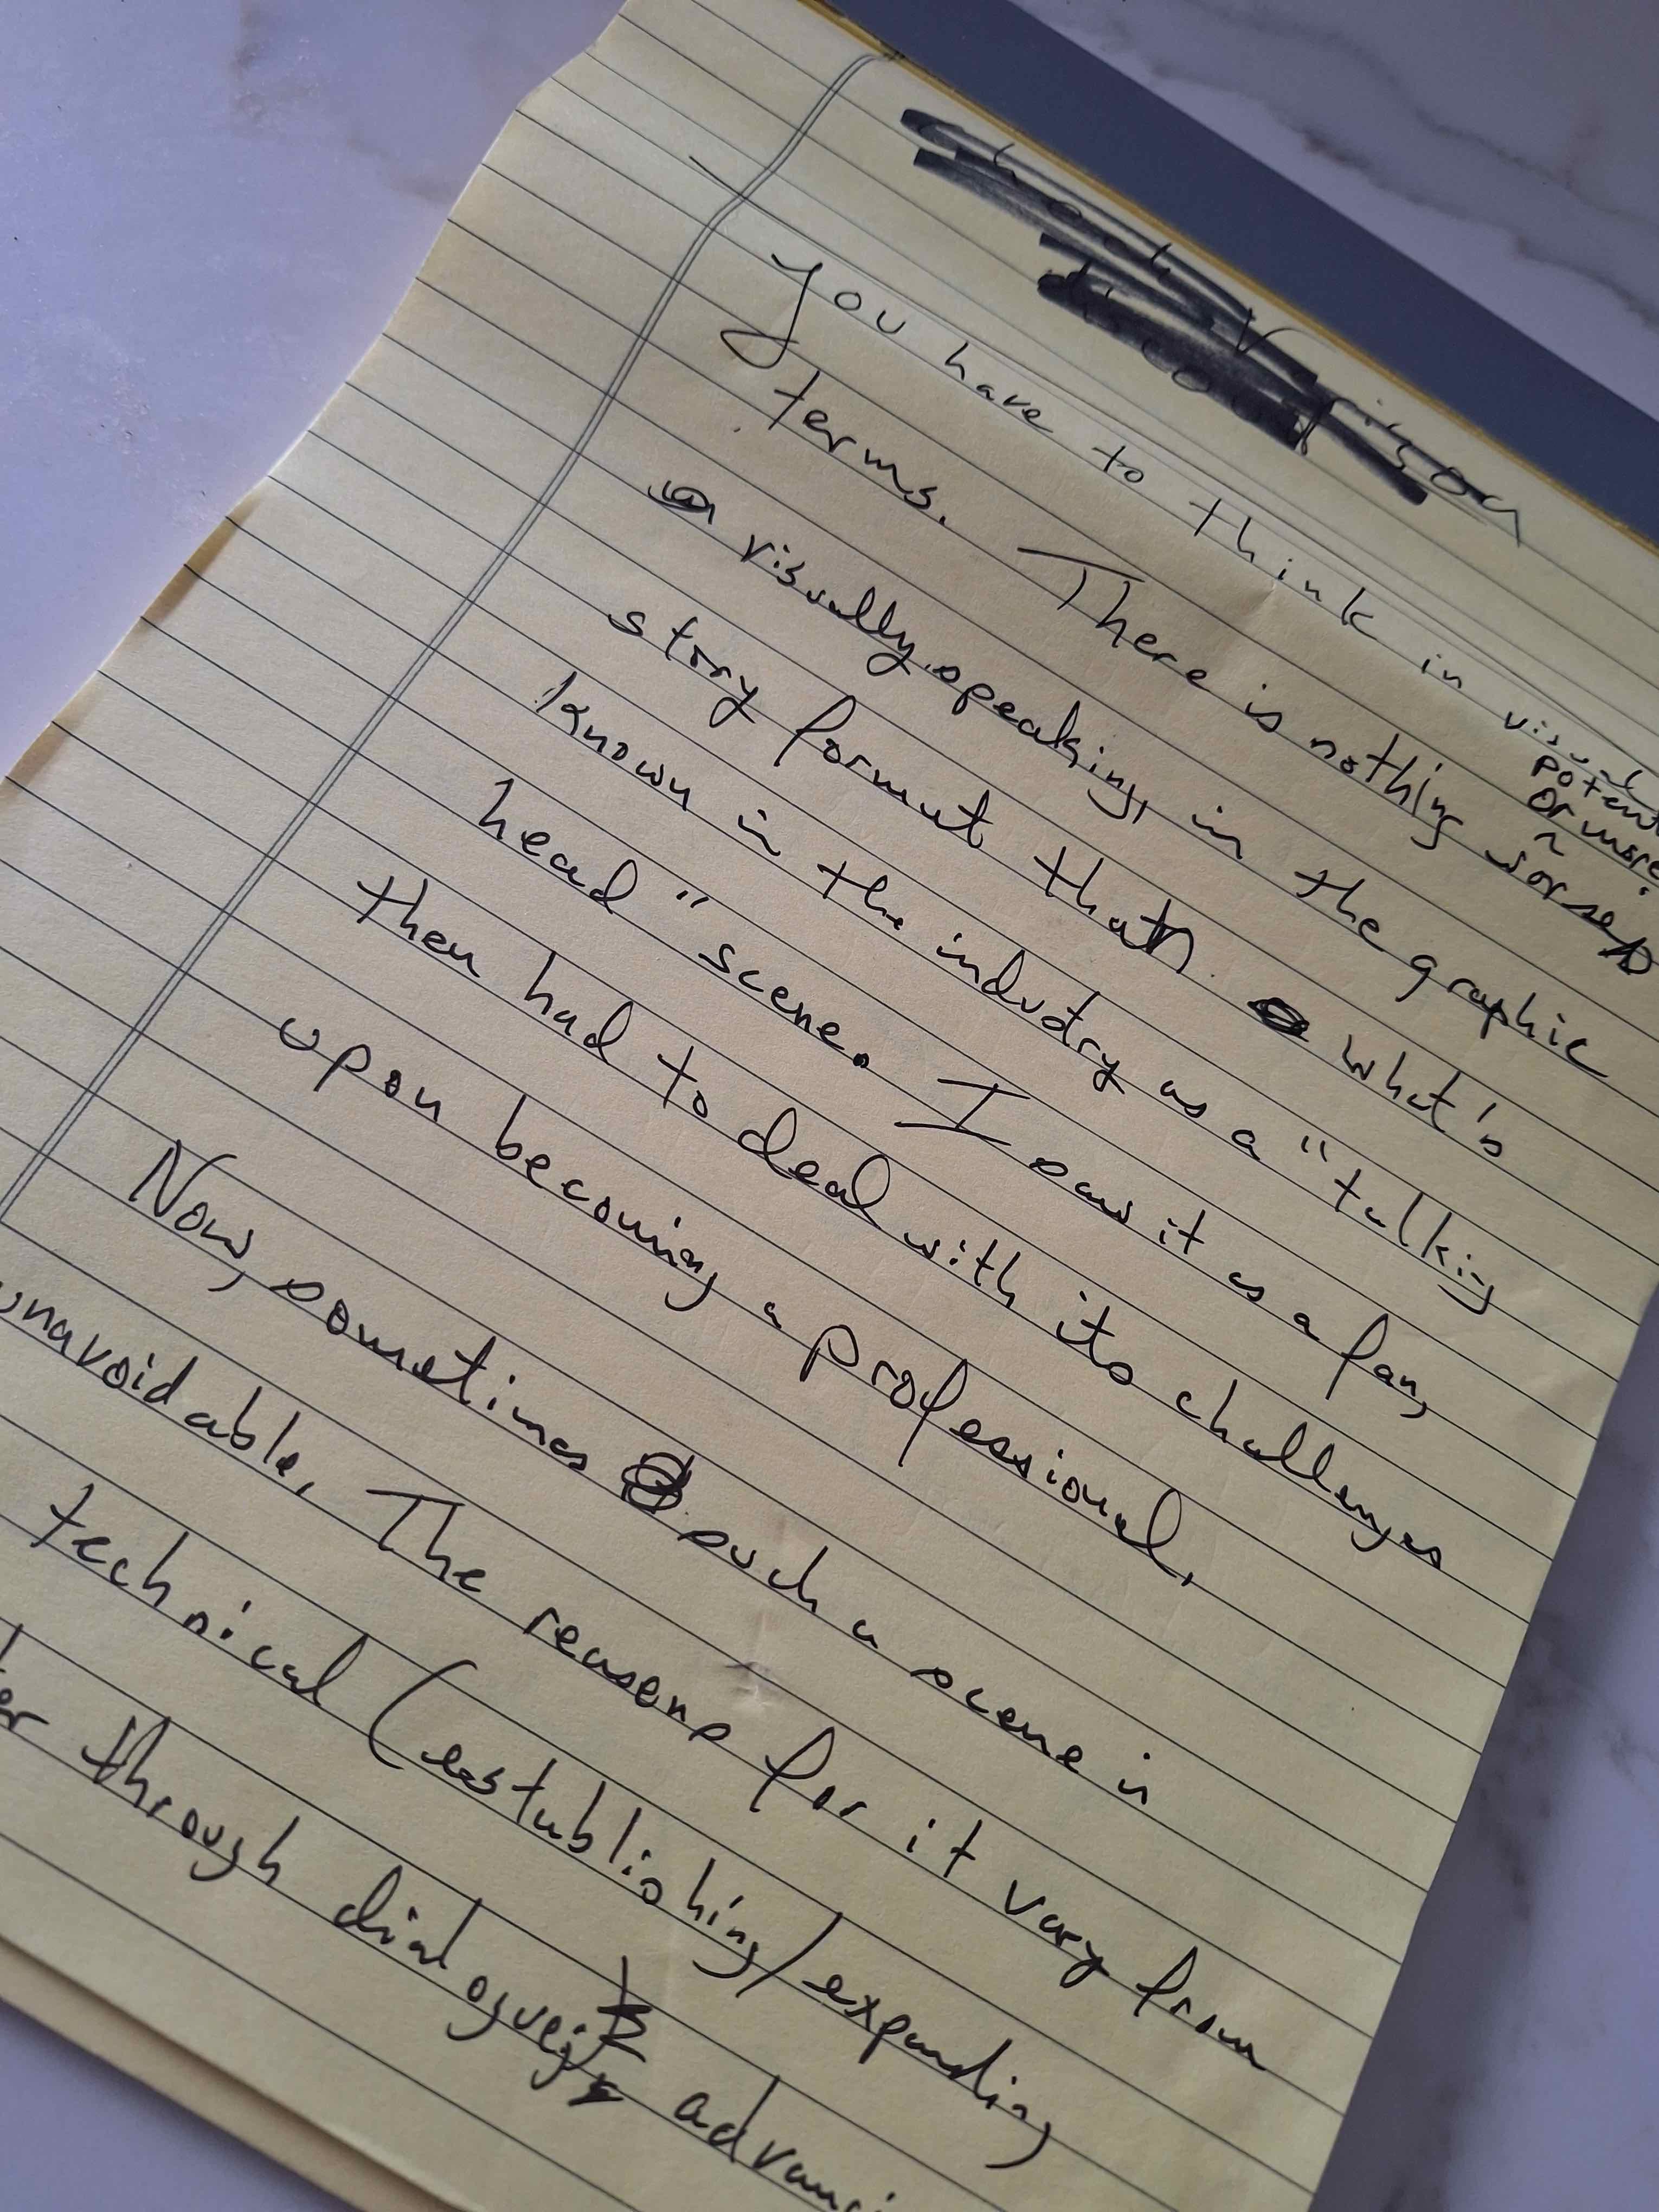 check Verizon
discount
You have to think in visual
terms. There is nothing worse
potent
or more
visually speaking, in the graphic
story format than what's
known in the industry as a "talking
head" scene. I saw it as a fan,
then had to deal with its challenges
upon becoming a professional.
Now, sometimes such a scene is
unavoidable. The reasons for it vary from
technical (establishing/expanding
through dialogue; advanci